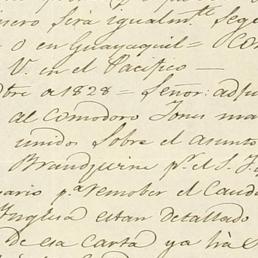 nero será igualm.te segu
o en Guayaquil = Con
V. en el Pacifico —
tbre de 1828 = Señor: adju
al comodoro Jones ma
unidos sobre el asunto
Brandywine p.r el S.
sario p.a remober el Caud
Inglesa estan detallado
de esa carta ya há